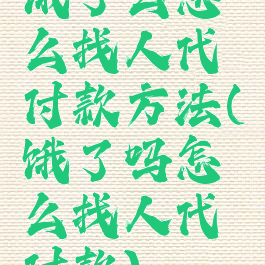 饿了么怎
么找人代
付款方法(
饿了吗怎
么找人代
付款)